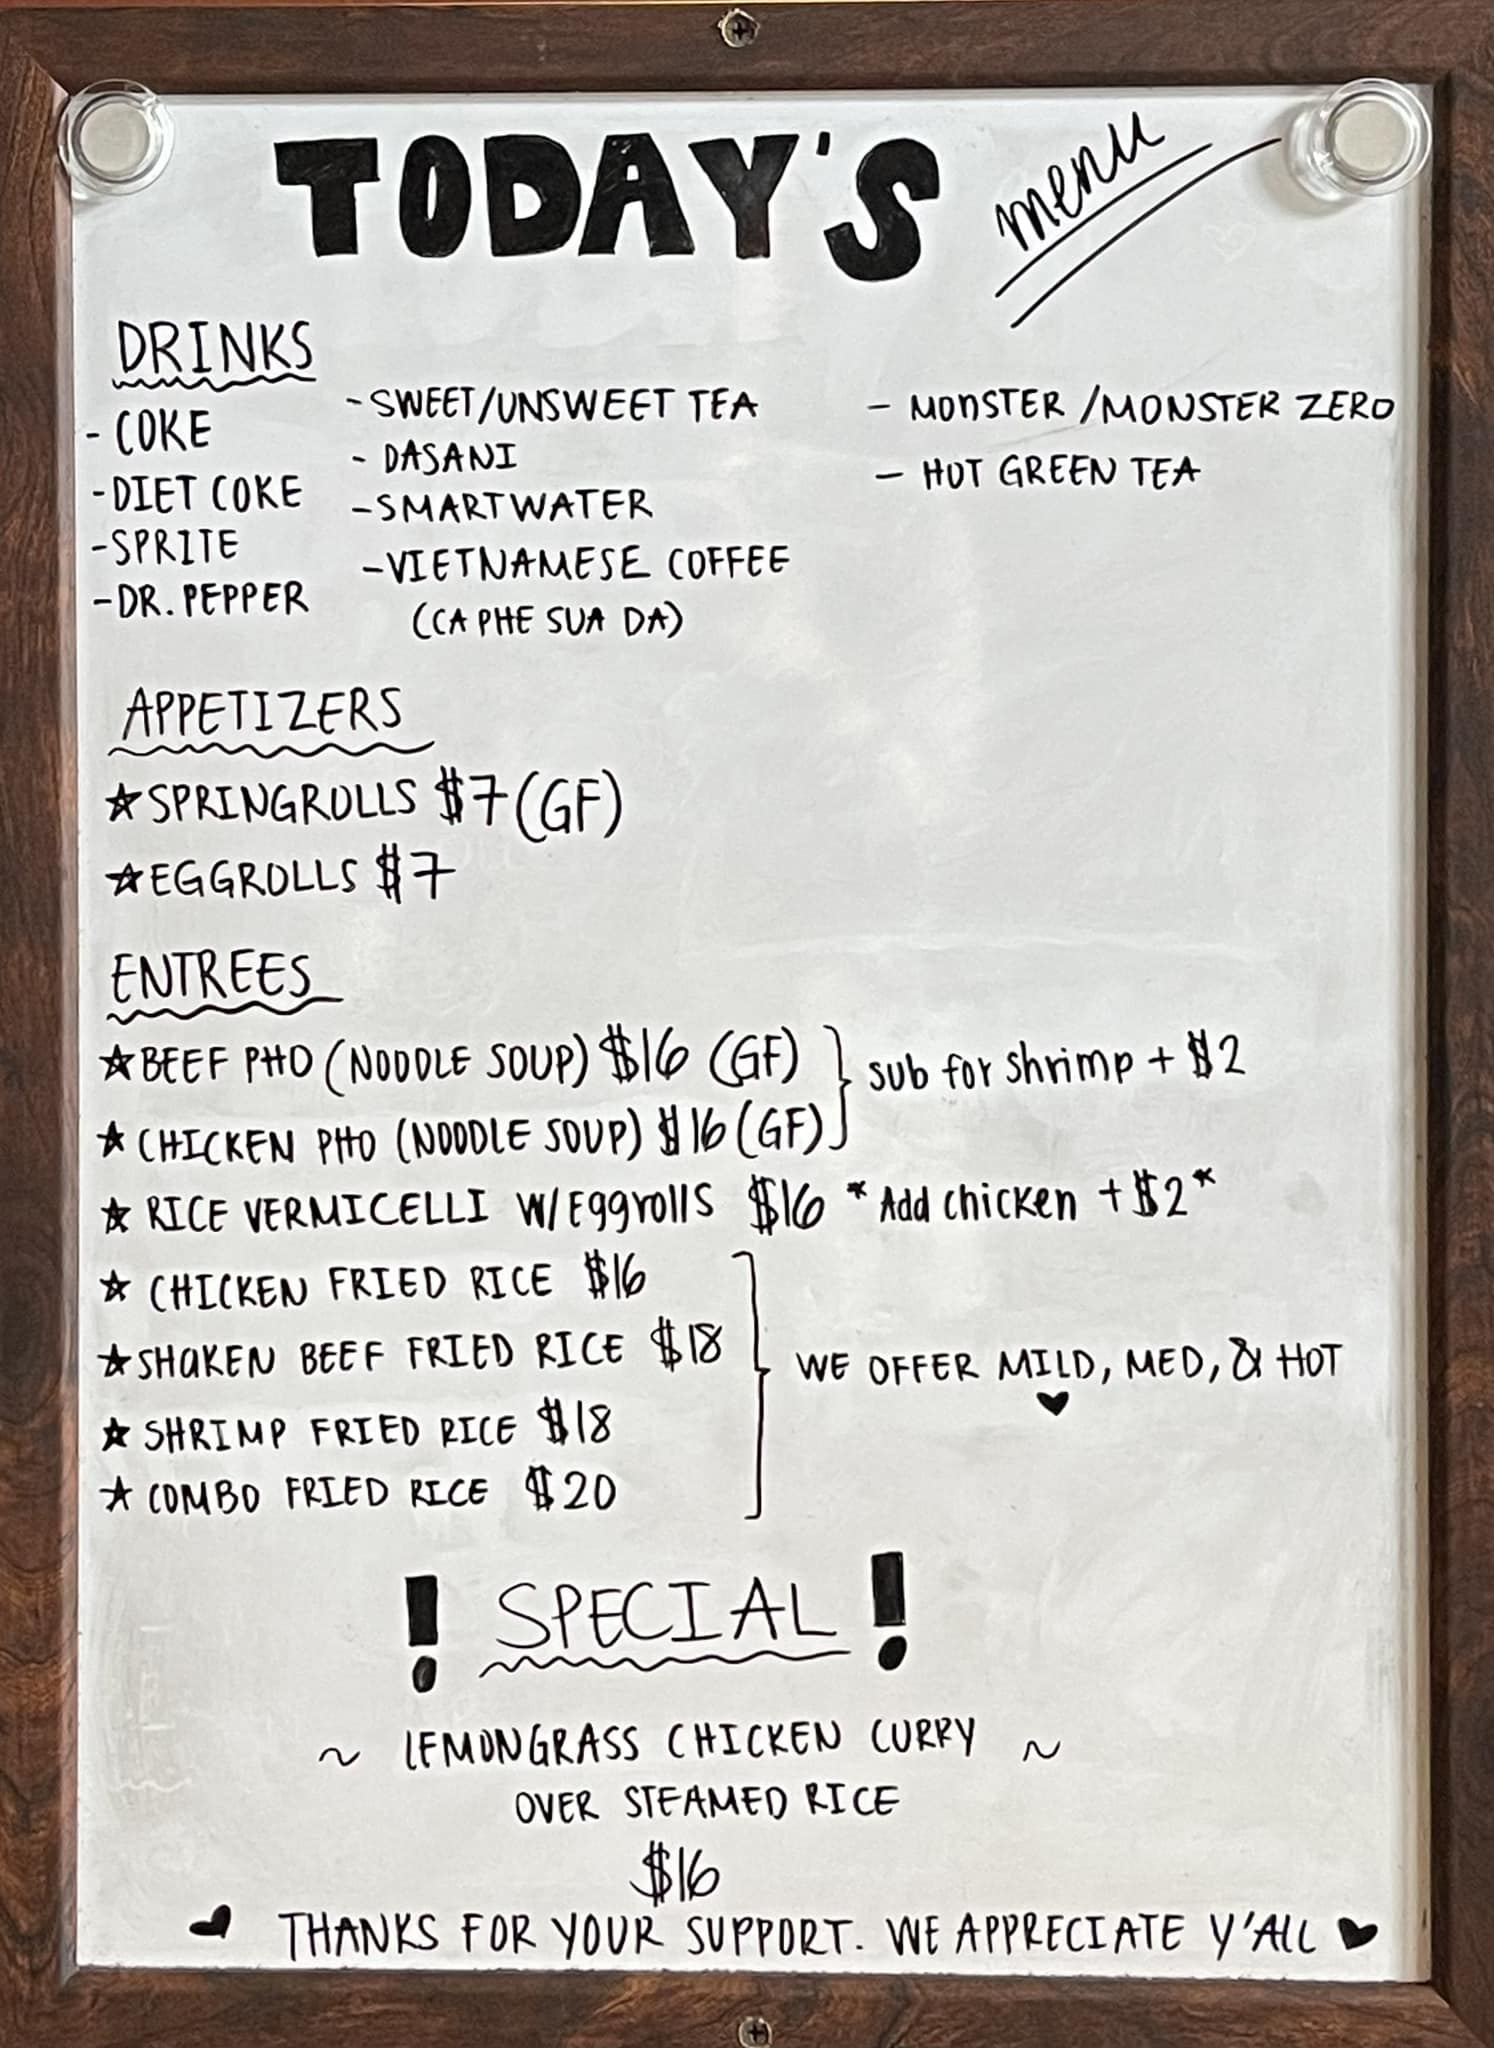 TODAY'S menu
DRINKS
- COKE
- DIET COKE
- SPRITE
- DR. PEPPER
- SWEET/UNSWEET TEA
- DASANI
- SMARTWATER
- VIETNAMESE COFFEE
(CA PHE SUA DA)
- MONSTER / MONSTER ZERO
- HOT GREEN TEA
APPETIZERS
☆ SPRINGROLLS $7 (GF)
☆ EGGROLLS $7
ENTREES
☆ BEEF PHO (NOODLE SOUP) $16 (GF)
☆ CHICKEN PHO (NOODLE SOUP) $16 (GF)
sub for shrimp + $2
☆ RICE VERMICELLI W/Eggrolls $16 *Add chicken + $2*
☆ CHICKEN FRIED RICE $16
☆ SHAKEN BEEF FRIED RICE $18
☆ SHRIMP FRIED RICE $18
☆ COMBO FRIED RICE $20
WE OFFER MILD, MED, & HOT
♥
! SPECIAL !
~ LEMONGRASS CHICKEN CURRY ~
OVER STEAMED RICE
$16
♥ THANKS FOR YOUR SUPPORT. WE APPRECIATE Y'ALL ♥